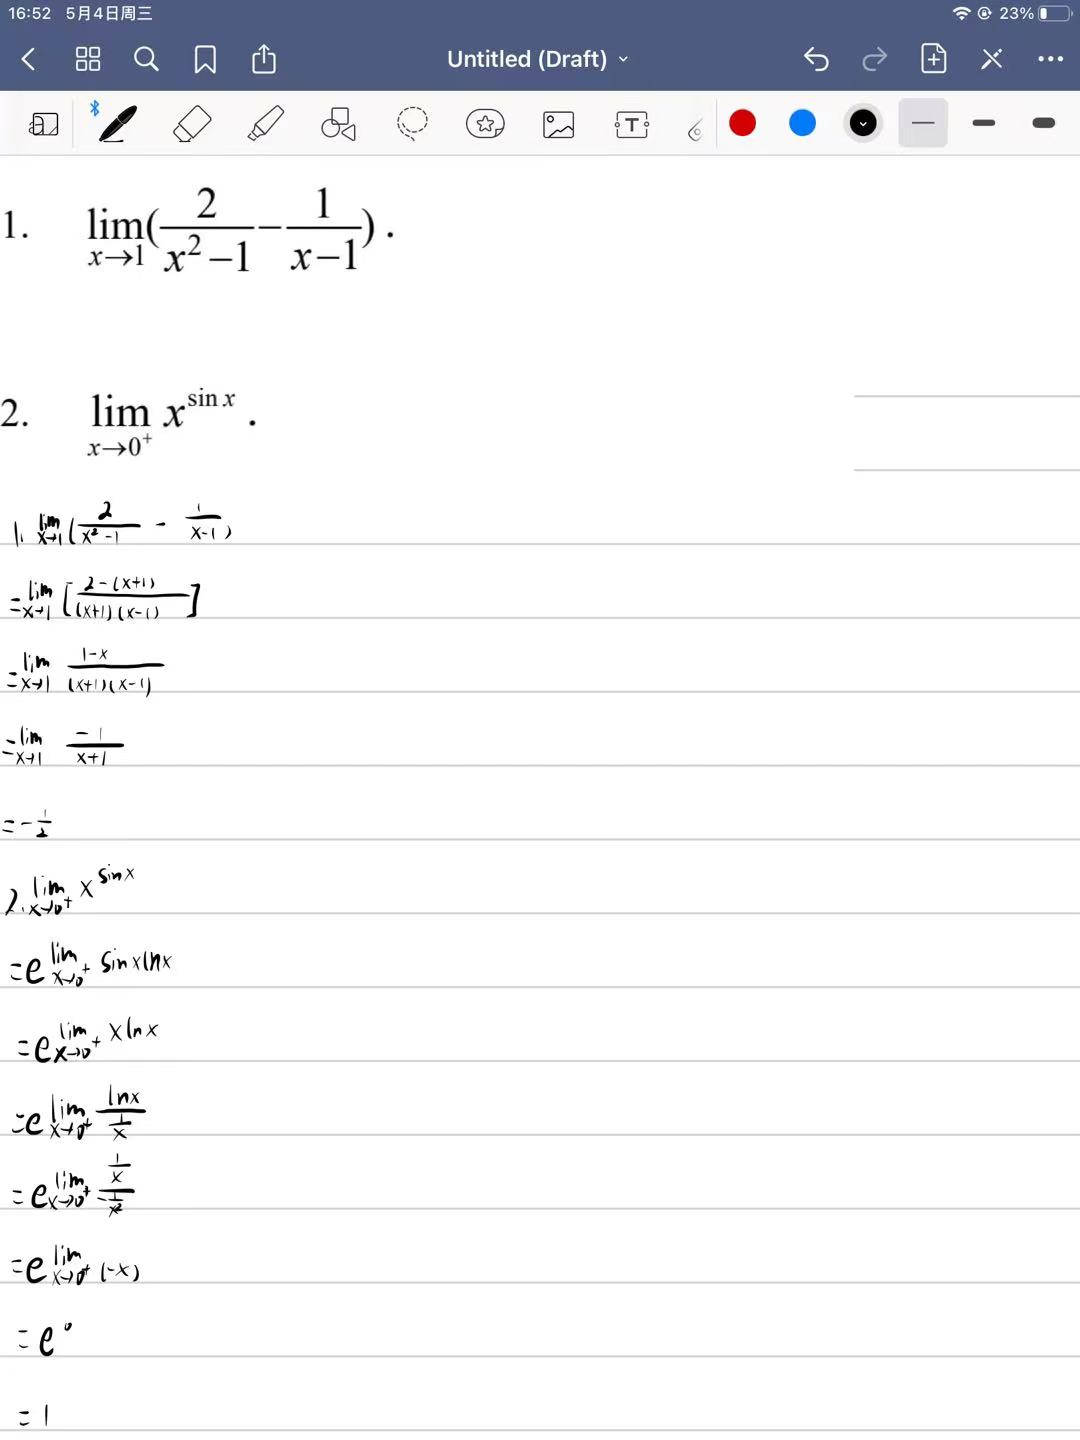 16:52 5月4日周三 23%
Untitled (Draft)
T
1. lim x→1 (2/(x²−1) − 1/(x−1)) .
2. lim x→0⁺ x^(sin x) .
1. lim x→1 (2/(x²-1) - 1/(x-1))
= lim x→1 [(2-(x+1))/((x+1)(x-1))]
= lim x→1 (1-x)/((x+1)(x-1))
= lim x→1 -1/(x+1)
= -1/2
2. lim x→0⁺ x^(sinx)
= e^(lim x→0⁺ sinxlnx)
= e^(lim x→0⁺ xlnx)
= e^(lim x→0⁺ lnx/(1/x))
= e^(lim x→0⁺ (1/x)/(-1/x²))
= e^(lim x→0⁺ (-x))
= e⁰
= 1